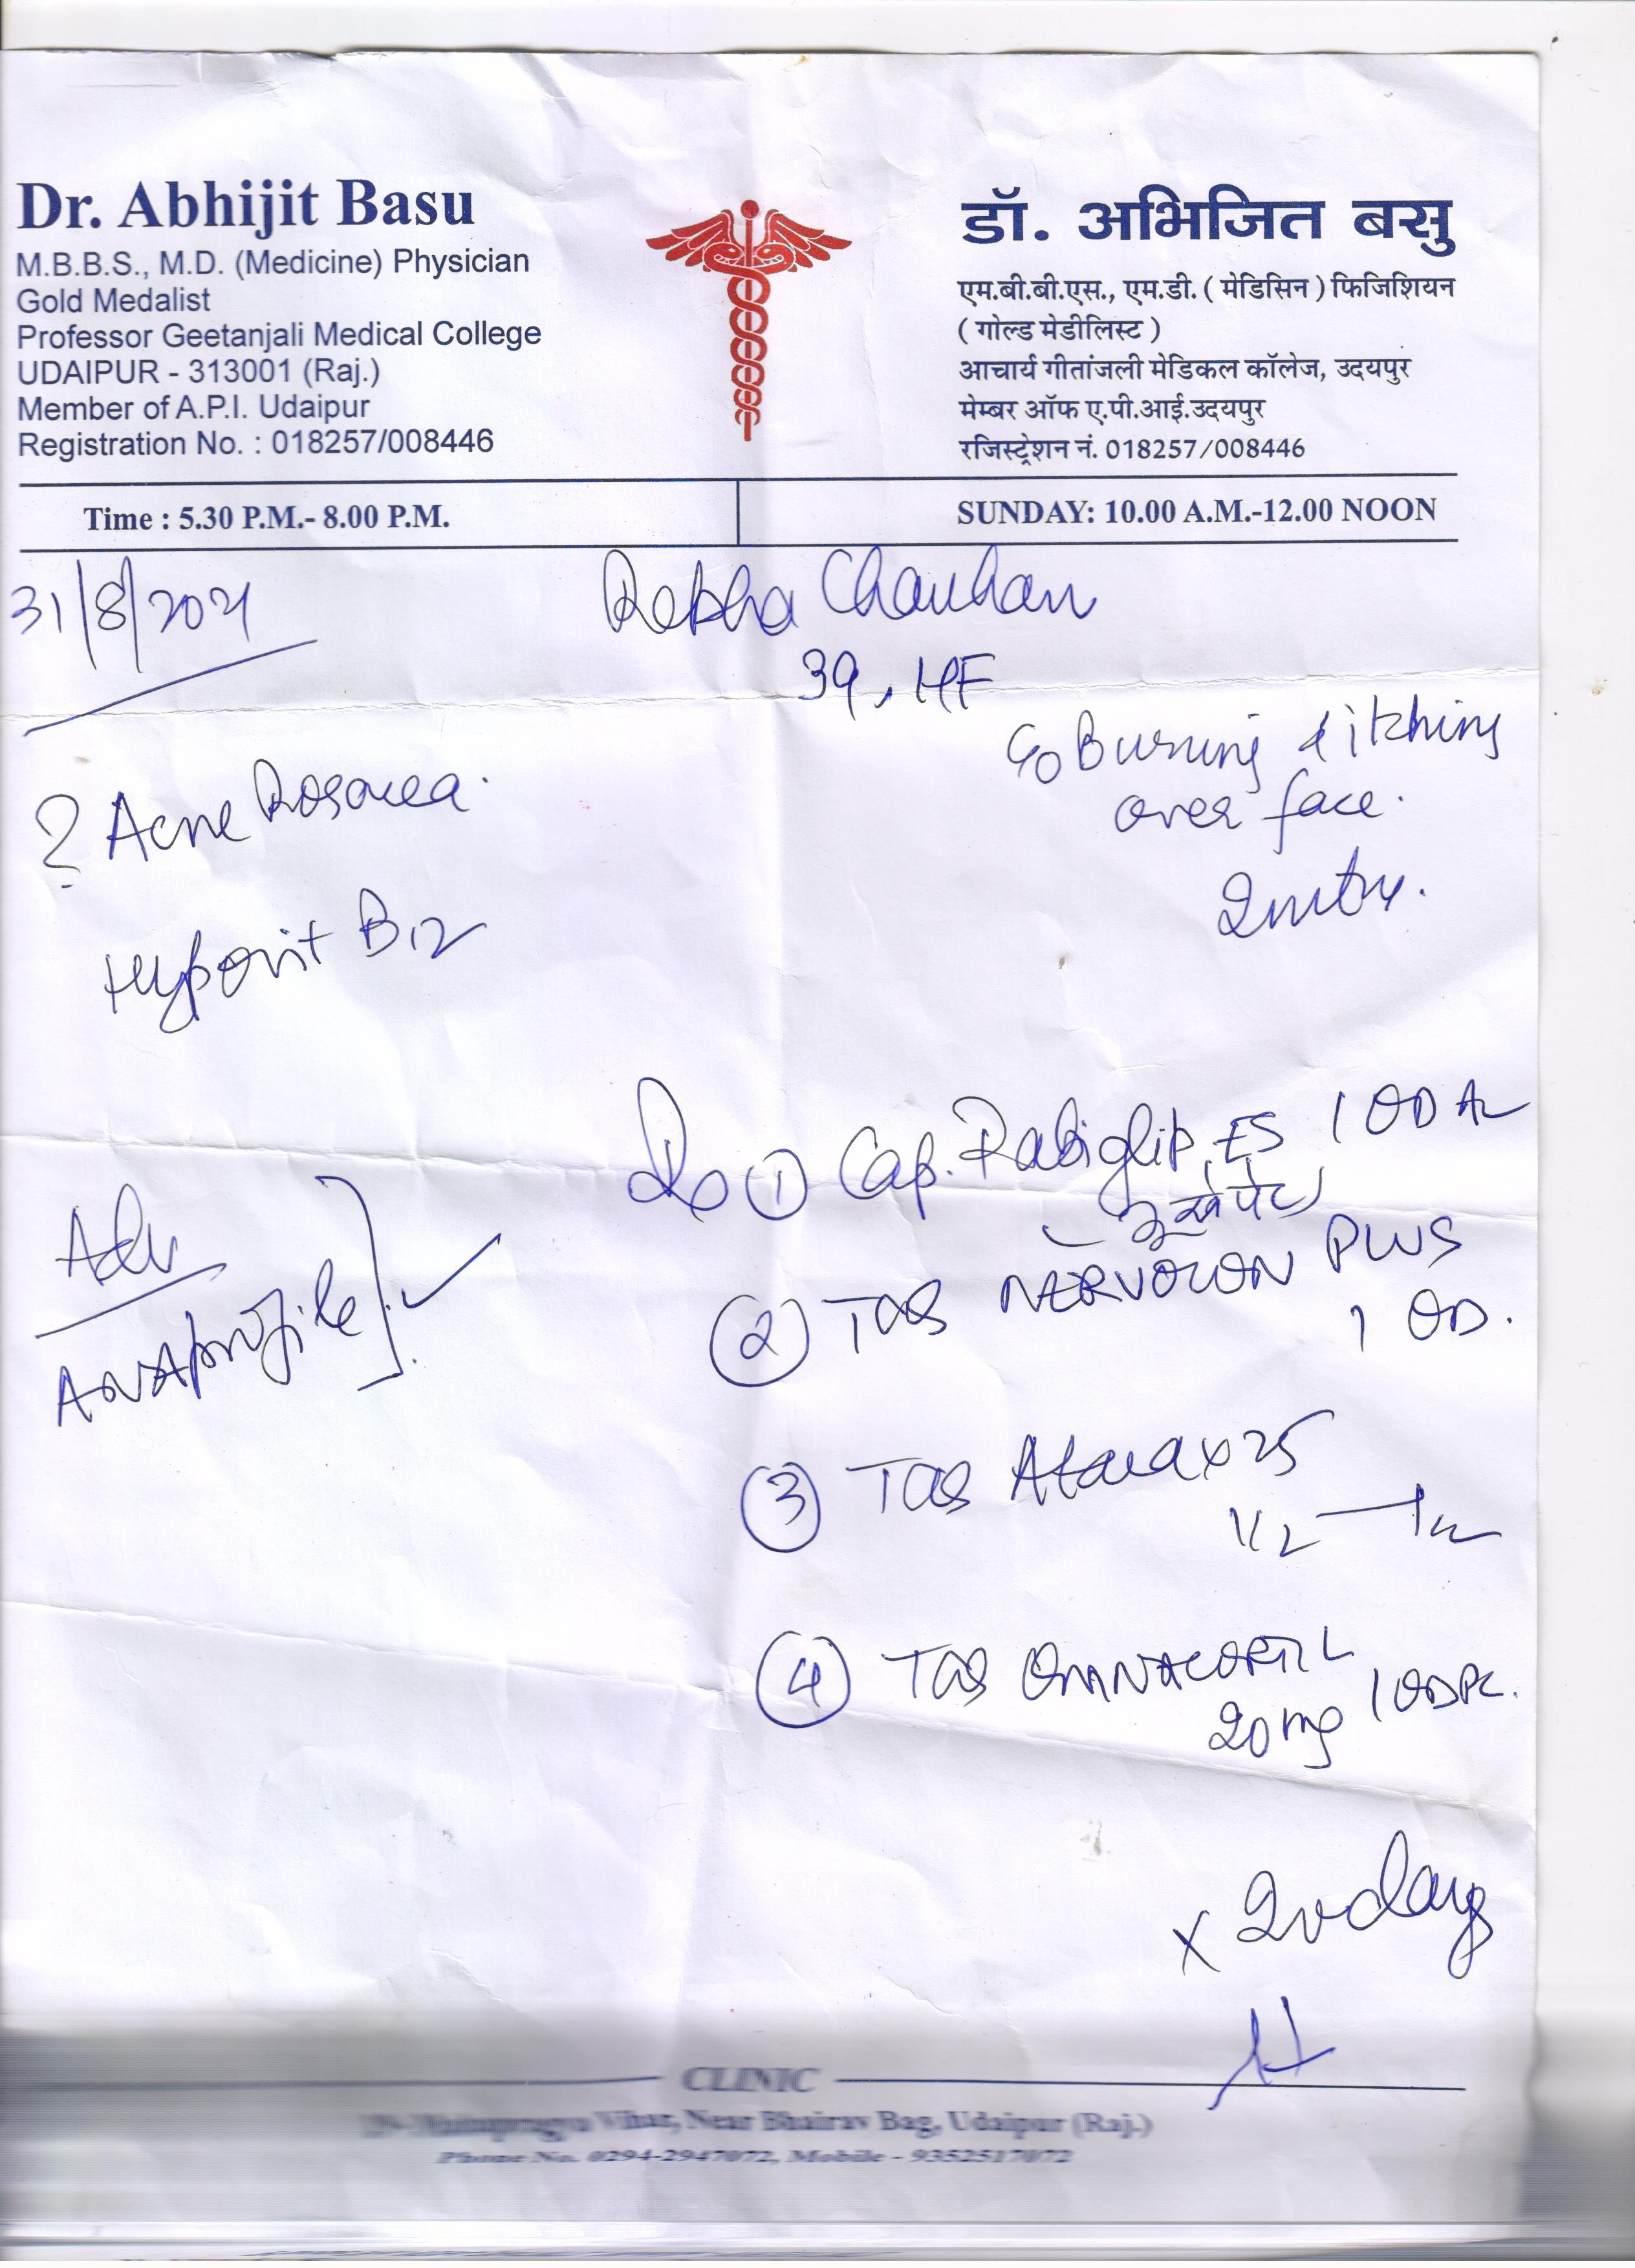 Dr. Abhijit Basu
M.B.B.S., M.D. (Medicine) Physician
Gold Medalist
Professor Geetanjali Medical College
UDAIPUR - 313001 (Raj.)
Member of A.P.I. Udaipur
Registration No. : 018257/008446
डॉ. अभिजित बसु
एम.बी.बी.एस., एम.डी. ( मेडिसिन ) फिजिशियन
( गोल्ड मेडीलिस्ट )
आचार्य गीतांजली मेडिकल कॉलेज, उदयपुर
मेम्बर ऑफ ए.पी.आई.उदयपुर
रजिस्ट्रेशन नं. 018257/008446
Time : 5.30 P.M.- 8.00 P.M.
SUNDAY: 10.00 A.M.-12.00 NOON
31/8/2021
Rekha Chauhan
39, HF
C/o Burning & itching
over face.
? Acne Rosacea.
Hypovit B12
Rx ① Cap. Rabiglip ES 1 OD AC
भूखे पेट
② Tab NERVOCON PLUS
1 OD.
Adv
ANA profile
③ Tab Atarax 25
1/2 — 1/2
④ Tab OMNACORTIL
20 mg 1 OD PC.
x 20 days
CLINIC
Vihar, Near Bhairav Bag, Udaipur (Raj.)
Phone No. 0294-2947072, Mobile - 9352517072